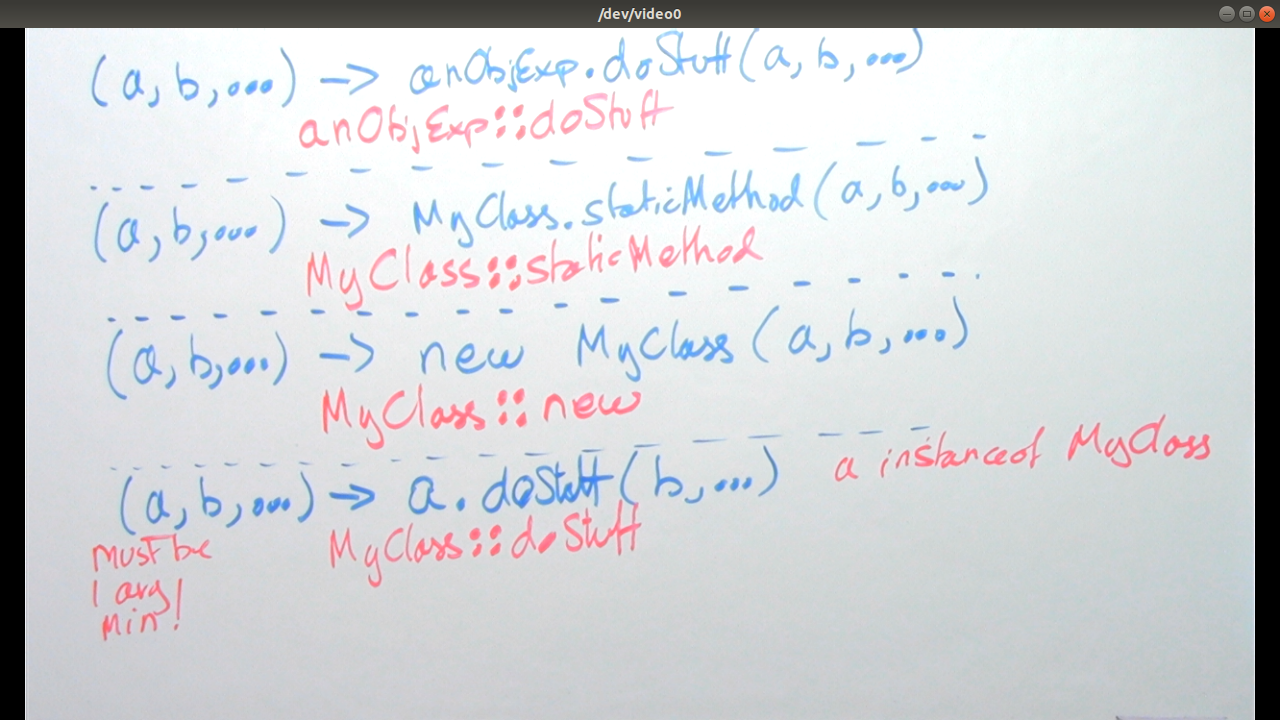 /dev/video0
(a, b, ...) -> anObjExp.doStuff(a, b, ...)
anObjExp::doStuff
(a, b, ...) -> MyClass.staticMethod(a, b, ...)
MyClass::staticMethod
(a, b, ...) -> new MyClass(a, b, ...)
MyClass::new
(a, b, ...) -> a.doStuff(b, ...) a instanceof MyClass
must be MyClass::doStuff
1 arg
min!